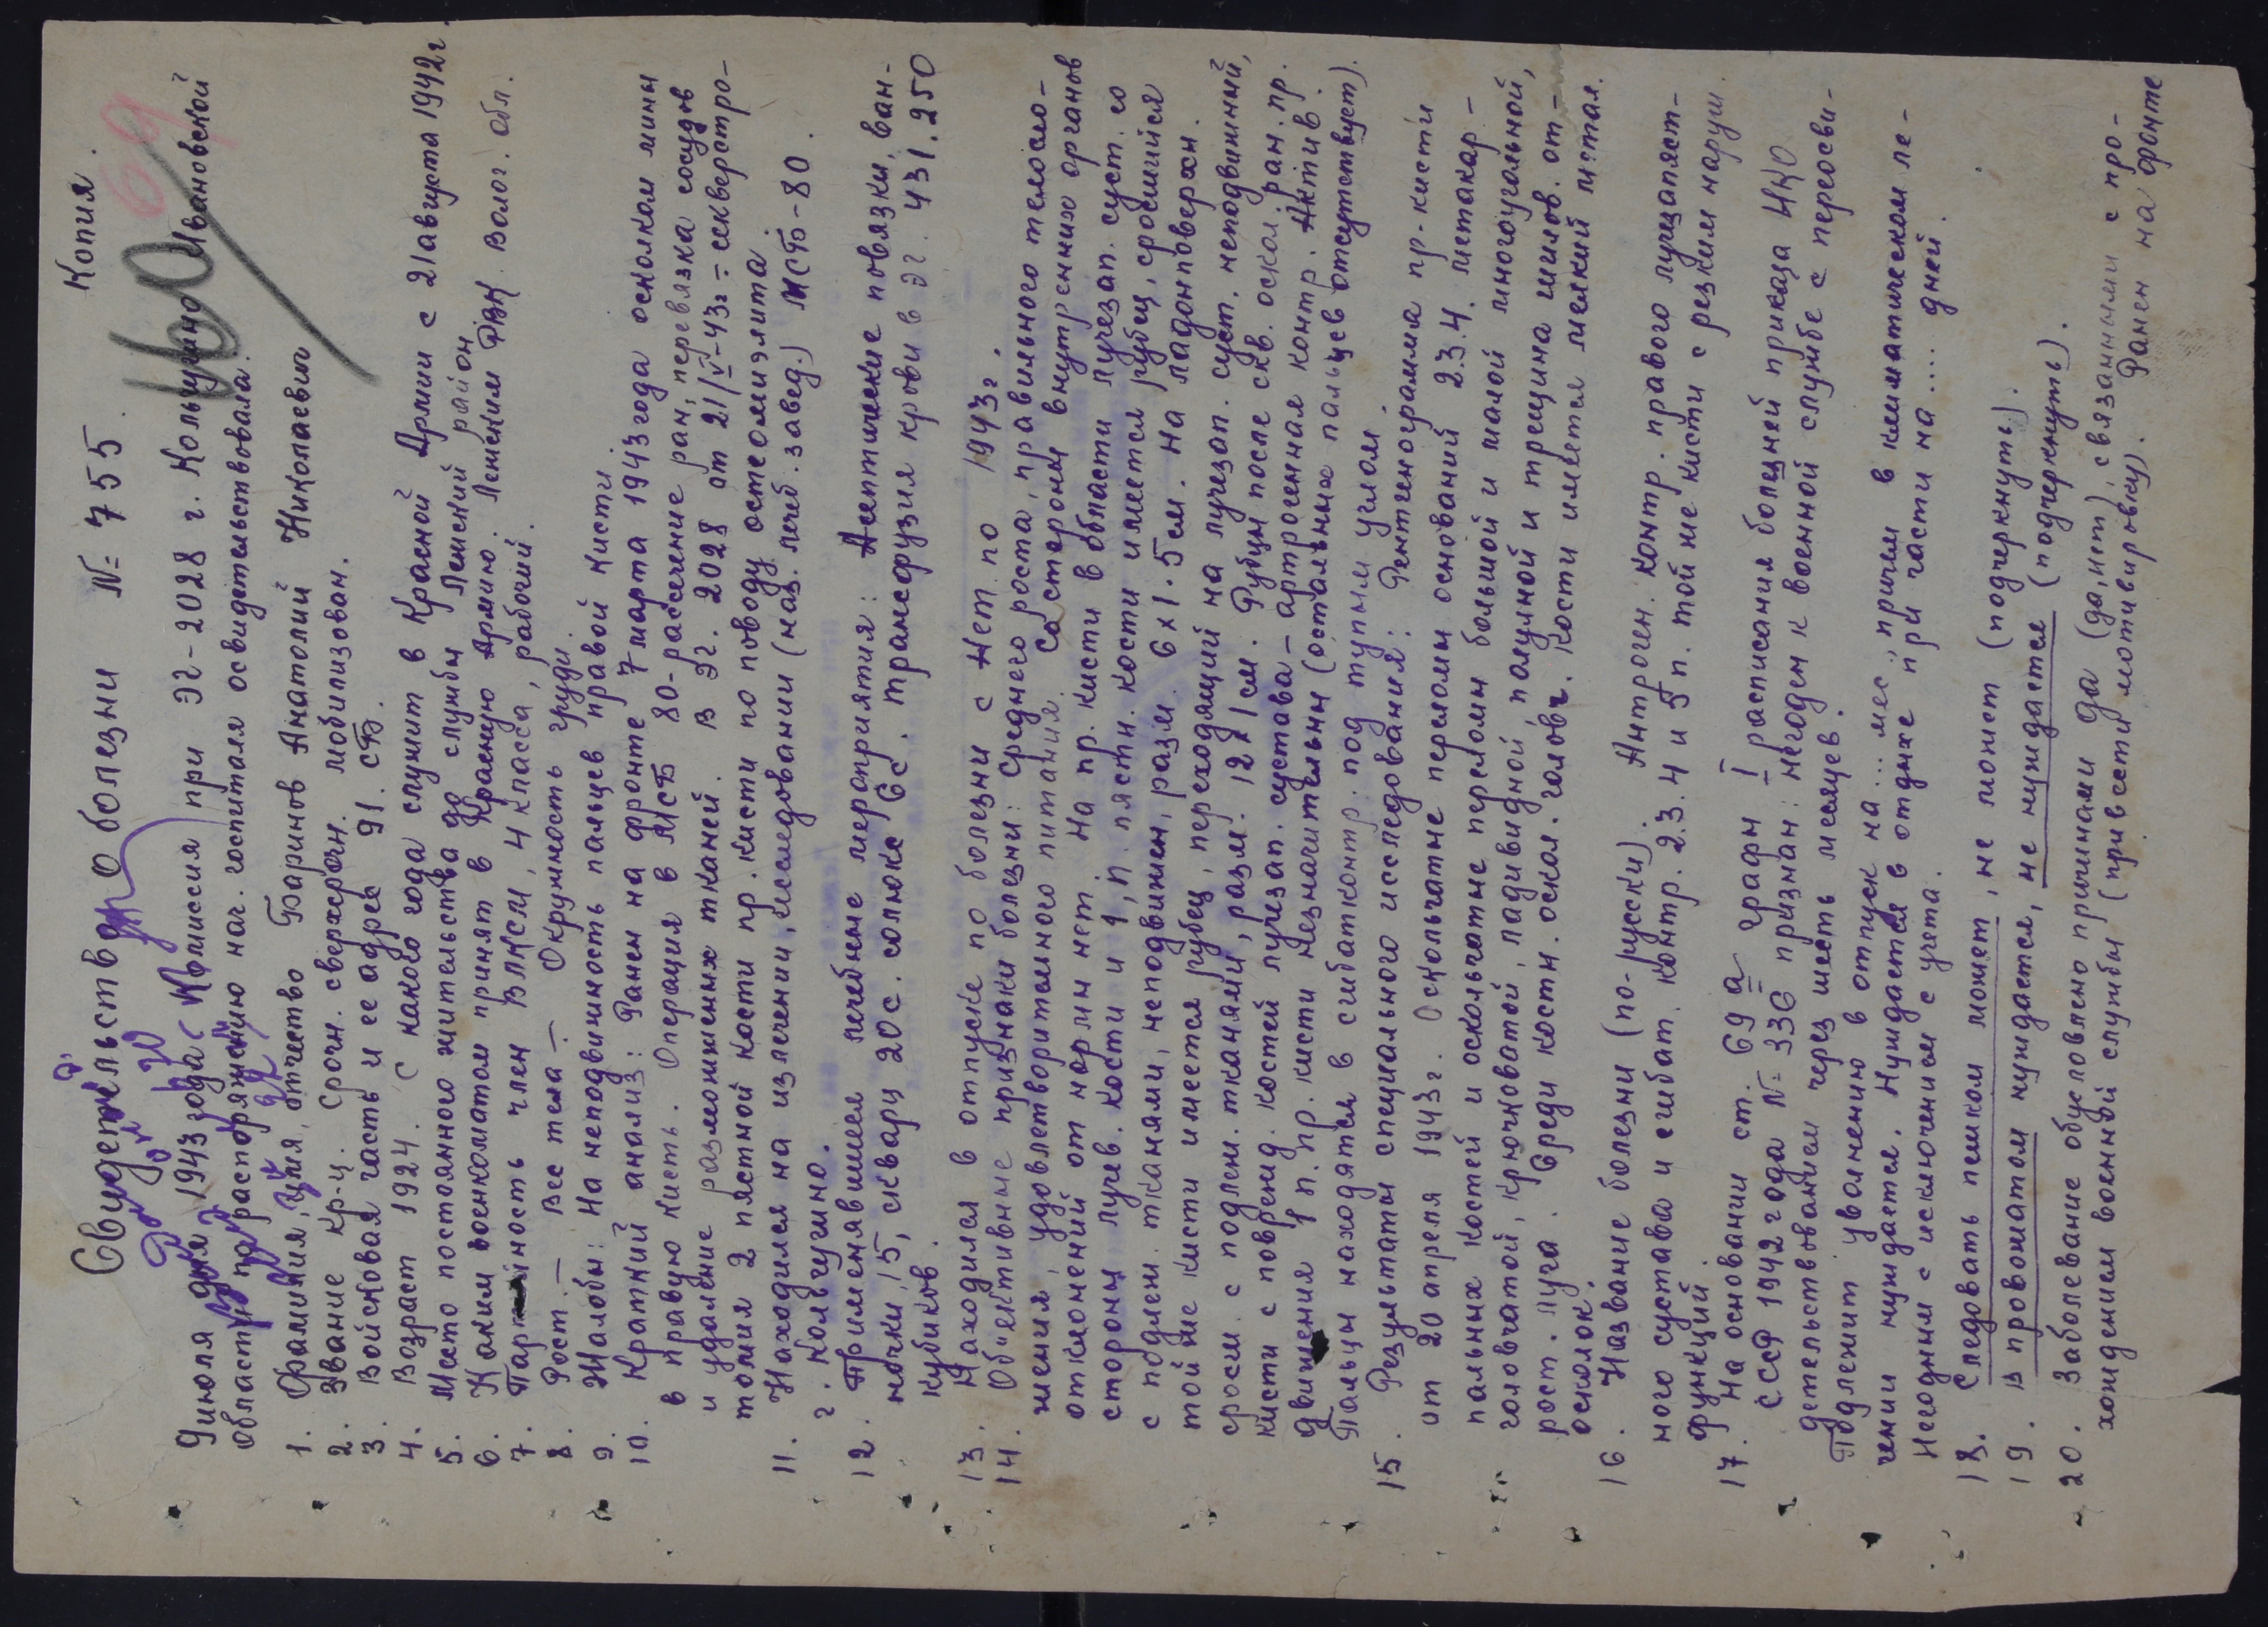 Копия.
69
60
Свидетельство о болезни № 755.
9 июля дня 1943 года Комиссия при ЭГ-2028 г. Кольчугино Ивановской
области по распоряжению нач. госпиталя освидетельствовала.
1. Фамилия, имя, отчество Баринов Анатолий Николаевич
2. Звание кр-ц. Срочн. сверхсрочн. мобилизован.
3. Войсковая часть и ее адрес 91. СБ.
4. Возраст 1924. С какого года служит в Красной Армии с 21 августа 1942 г.
5. Место постоянного жительства до службы Ленский район
6. Каким военкоматом принят в Красную Армию. Ленским РВК. Волог. обл.
7. Партийность член ВЛКСМ, 4 класса, рабочий.
8. Рост.— Вес тела — Окружность груди.
9. Жалобы: На неподвижность пальцев правой кисти.
10. Краткий анализ: Ранен на фронте 7 марта 1943 года осколком мины
в правую кисть. Операция в МСБ 80-рассечение ран, перевязка сосудов
и удаление размозженных тканей. В ЭГ. 2028 от 21/V-43г = секвестро-
томия 2 пястной кости пр. кисти по поводу остеомиэлита.
11. Находился на излечении, исследовании (наз. лечеб. завед.) МСБ-80.
г. Кольчугино.
12. Применявшиеся лечебные мероприятия: Асептические повязки, ван-
ночки, 15, скварц 20 с. солюкс 6 с. трансфузия крови в ЭГ. 431. 250
кубиков.
13. Находился в отпуске по болезни с Нет по 1943 г.
14. Об"ективные признаки болезни: Среднего роста, правильного телосло-
жения, удовлетворительного питания. Со стороны внутренних органов
отклонений от нормы нет. На пр. кисти в области лучезап. суст. со
стороны лучев. кости и 1, п. пястн. кости имеется рубец, сросшийся
с подлеж. тканями, неподвижен, разм. 6х1.5 см. На ладон поверхн.
той же кисти имеется рубец, переходящий на лучезап. суст. неподвижный,
сросш. с подлеж. тканями, разм. 12х1 см. Рубцы после скв. оскол. ран. пр.
кисти с поврежд. костей лучезап. сустава – артрогенная контр. Актив.
движения 1 п. пр. кисти незначительны (остальных пальцев отсутствует).
Пальцы находятся в сгибат контр. под тупым углом.
15. Результаты специального исследования: Рентгенограмма пр-кисти
от 20 апреля 1943 г. Оскольчатые переломы оснований 2.3.4. метакар-
пальных костей и оскольчатые переломы большой и малой многоугольной,
головчатой, крючковатой, ладивидной, полулунной и трещина шилов. от-
рост. луча. Среди костн. оскол. головч. кости имеется мелкий метал.
осколок.
16. Название болезни (по-русски). Антроген. контр. правого лучезапяст-
ного сустава и сгибат. контр. 2.3.4 и 5 п. той же кисти с резким наруш.
функций.
17. На основании ст. 69 а графы I расписания болезней приказа НКО
СССР 1942 года № 336 признан: негоден к военной службе с переосви-
детельствованием через шесть месяцев.
Подлежит увольнению в отпуск на ... мес, причем в климатическом ле-
чении нуждается. Нуждается в отдыхе при части на .... дней.
Негодным с исключением с учета.
18. Следовать пешком может, не может (подчеркнуть).
19. В провожатом нуждается, не нуждается (подчеркнуть).
20. Заболевание обусловлено причинами да (да, нет), связанными с про-
хождением военной службы (привести мотивировку). Ранен на фронте